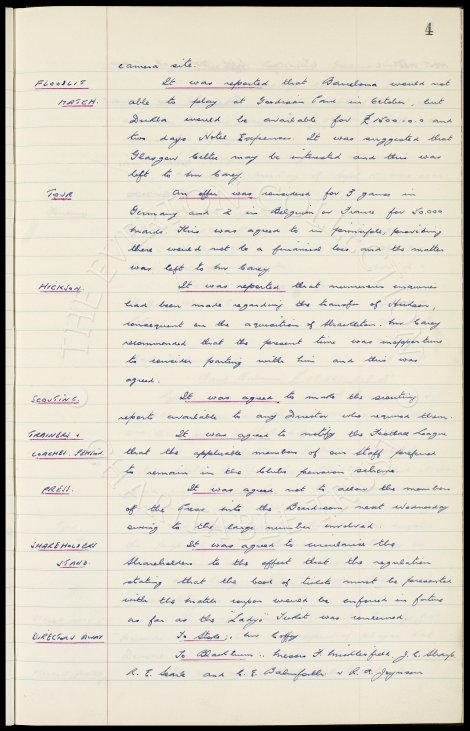 4
camera site.
FLOODLIT MATCH.
It was reported that Barcelona would not
able to play at Goodison Park in October, but
Dukla would be available for £1500.0.0 and
two days Hotel Expenses. It was suggested that
Glasgow Celtic may be interested and this was
left to Mr Carey.
TOUR
An offer was considered for 3 games in
Germany and 2 in Belgium or France for 50,000
marks. This was agreed to in principle, providing
there would not be a financial loss and the matter
was left to Mr Carey
HICKSON.
It was reported that numerous enquiries
had been made regarding the transfer of Hickson,
consequent on the acquisition of Shackleton. Mr Carey
recommended that the present time was inopportune
to consider parting with him and this was
agreed.
SCOUTING.
It was agreed to make the scouting
reports available to any Director who required them.
TRAINERS & COACHES PENSION
It was agreed to notify the Football League
that the applicable members of our Staff preferred
to remain in the Clubs pension scheme.
PRESS.
It was agreed not to allow the members
of the Press into the Boardroom next Wednesday
owing to the large number involved.
SHAREHOLDERS STAND.
It was agreed to circularise the
Shareholders to the effect that the regulation
stating that the book of tickets must be presented
with the match coupon would be enforced in future
as far as the "Ladys" Ticket was concerned.
DIRECTORS AWAY
To Stoke:. Mr Coffey
To Blackburn:. Messrs F. Micklesfield, J. C. Sharp,
R. E. Searle and C. E. Balmforth & R. A. Joynson